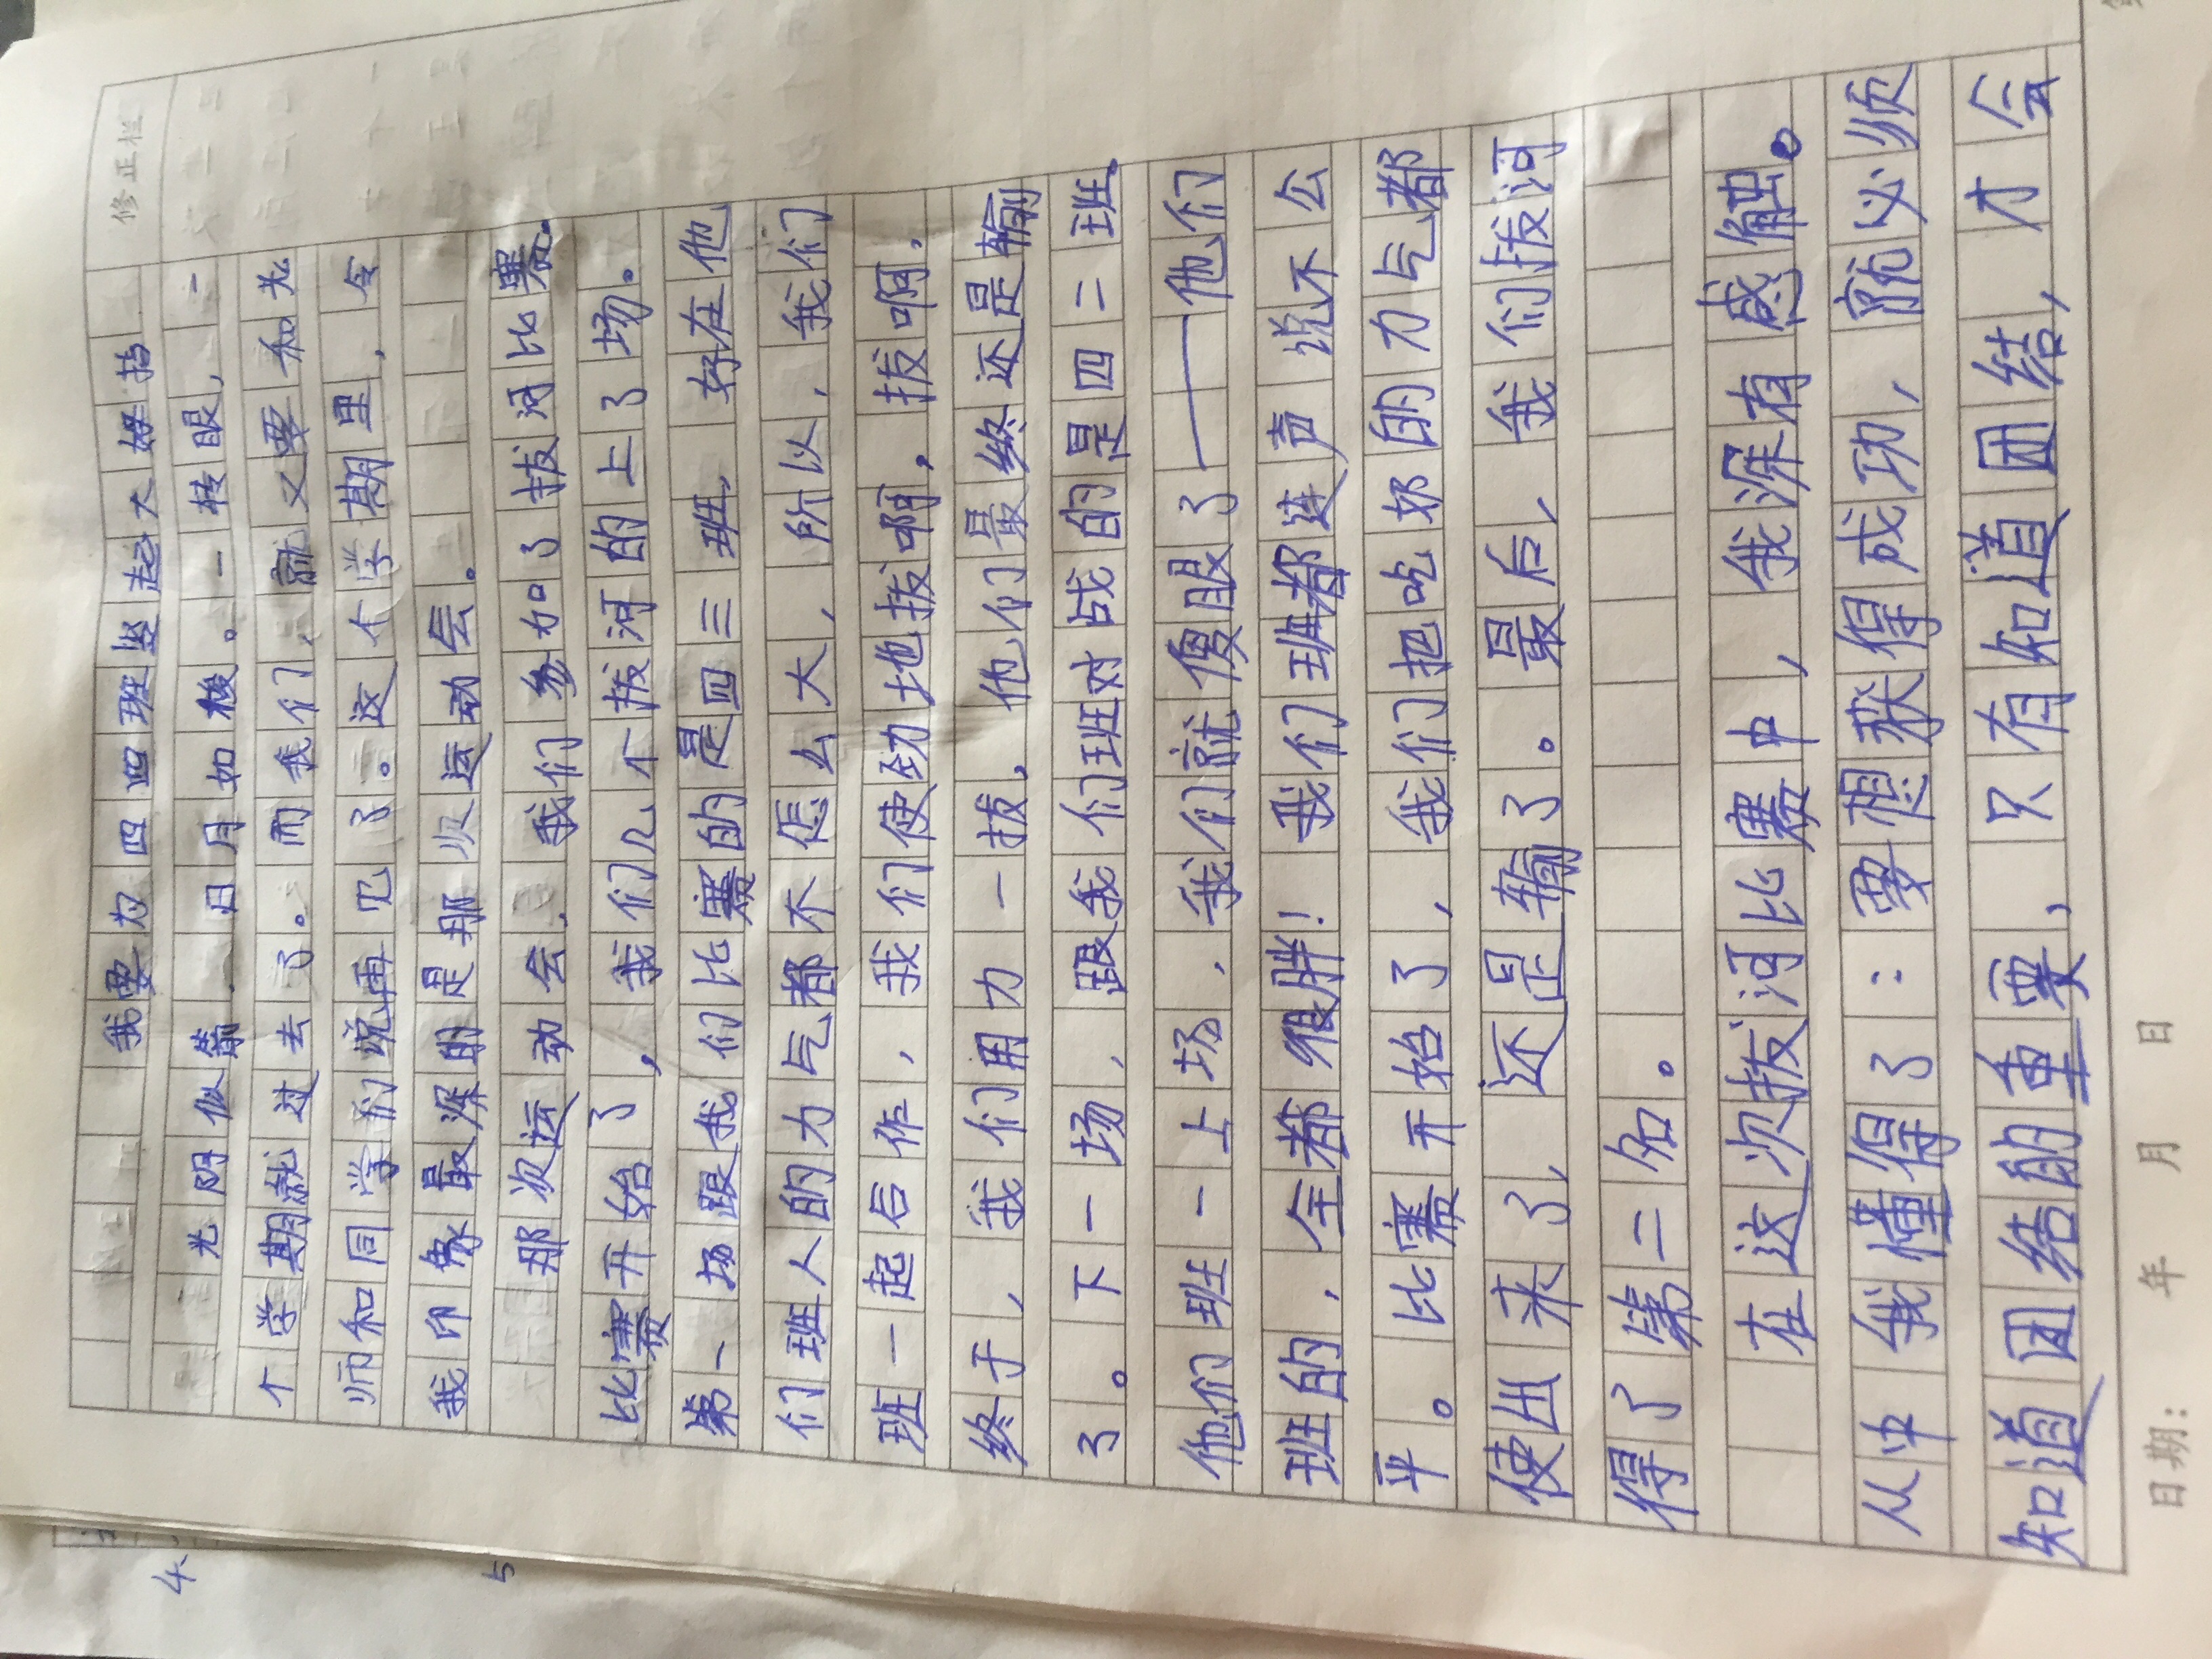 修正栏
我要为四四班竖起大姆指
光阴似箭，日月如梭。一转眼，一
个学期就过去了。而我们，就又要和老
师和同学们说再见了。这个学期里，令
我印象最深的是那次运动会。
那次运动会，我们参加了拔河比赛。
比赛开始了，我们几个拔河的上了场。
第一场跟我们比赛的是四三班，好在他
们班人的力气都不怎么大，所以，我们
班一起合作，我们使劲地拔啊，拔啊。
终于，我们用力一拔，他们最终还是输
了。下一场，跟我们班对战的是四二班。
他们班一上场，我们就傻眼了——他们
班的，全都很胖！我们班都连声说不公
平。比赛开始了，我们把吃奶的力气都
使出来了，还是输了。最后，我们拔河
得了第二名。
在这次拔河比赛中，我深有感触。
从中我懂得了：要想获得成功，就必须
知道团结的重要，只有知道团结，才会
日期：　年　月　日
4、
5